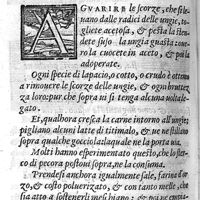 AGVARIRE le scorze, che si le-
uano dalle radici delle ungie, to-
gliete acetosa, & pesta la sten-
dete sujo la ungia guasta: oue-
ro la cuocete in aceto, & poi
adoperate.
Ogni specie di lapacio, ò cotto, o crudo è ottimo
a rimouere le scorze delle ungie, & ogni bruttez-
za loro: pur che sopra ni si tenga alcuna uolta le-
gato.
Et, qualhora cresca la carne intorno all'ungie:
pigliano alcuni latte di titimalo, & ne ne stillano
sopra qualche gocciola laquale ne la porta uia.
Molti hanno esperimentato questo, che lo ster-
co di pecora pestoui sopra, ne la consuma.
Prendesi anchora igualmente sale, farina d'or-
zo, & costo poluerizato, & con tanto mele, che
sia atto a sostenerli mischiano: & ne